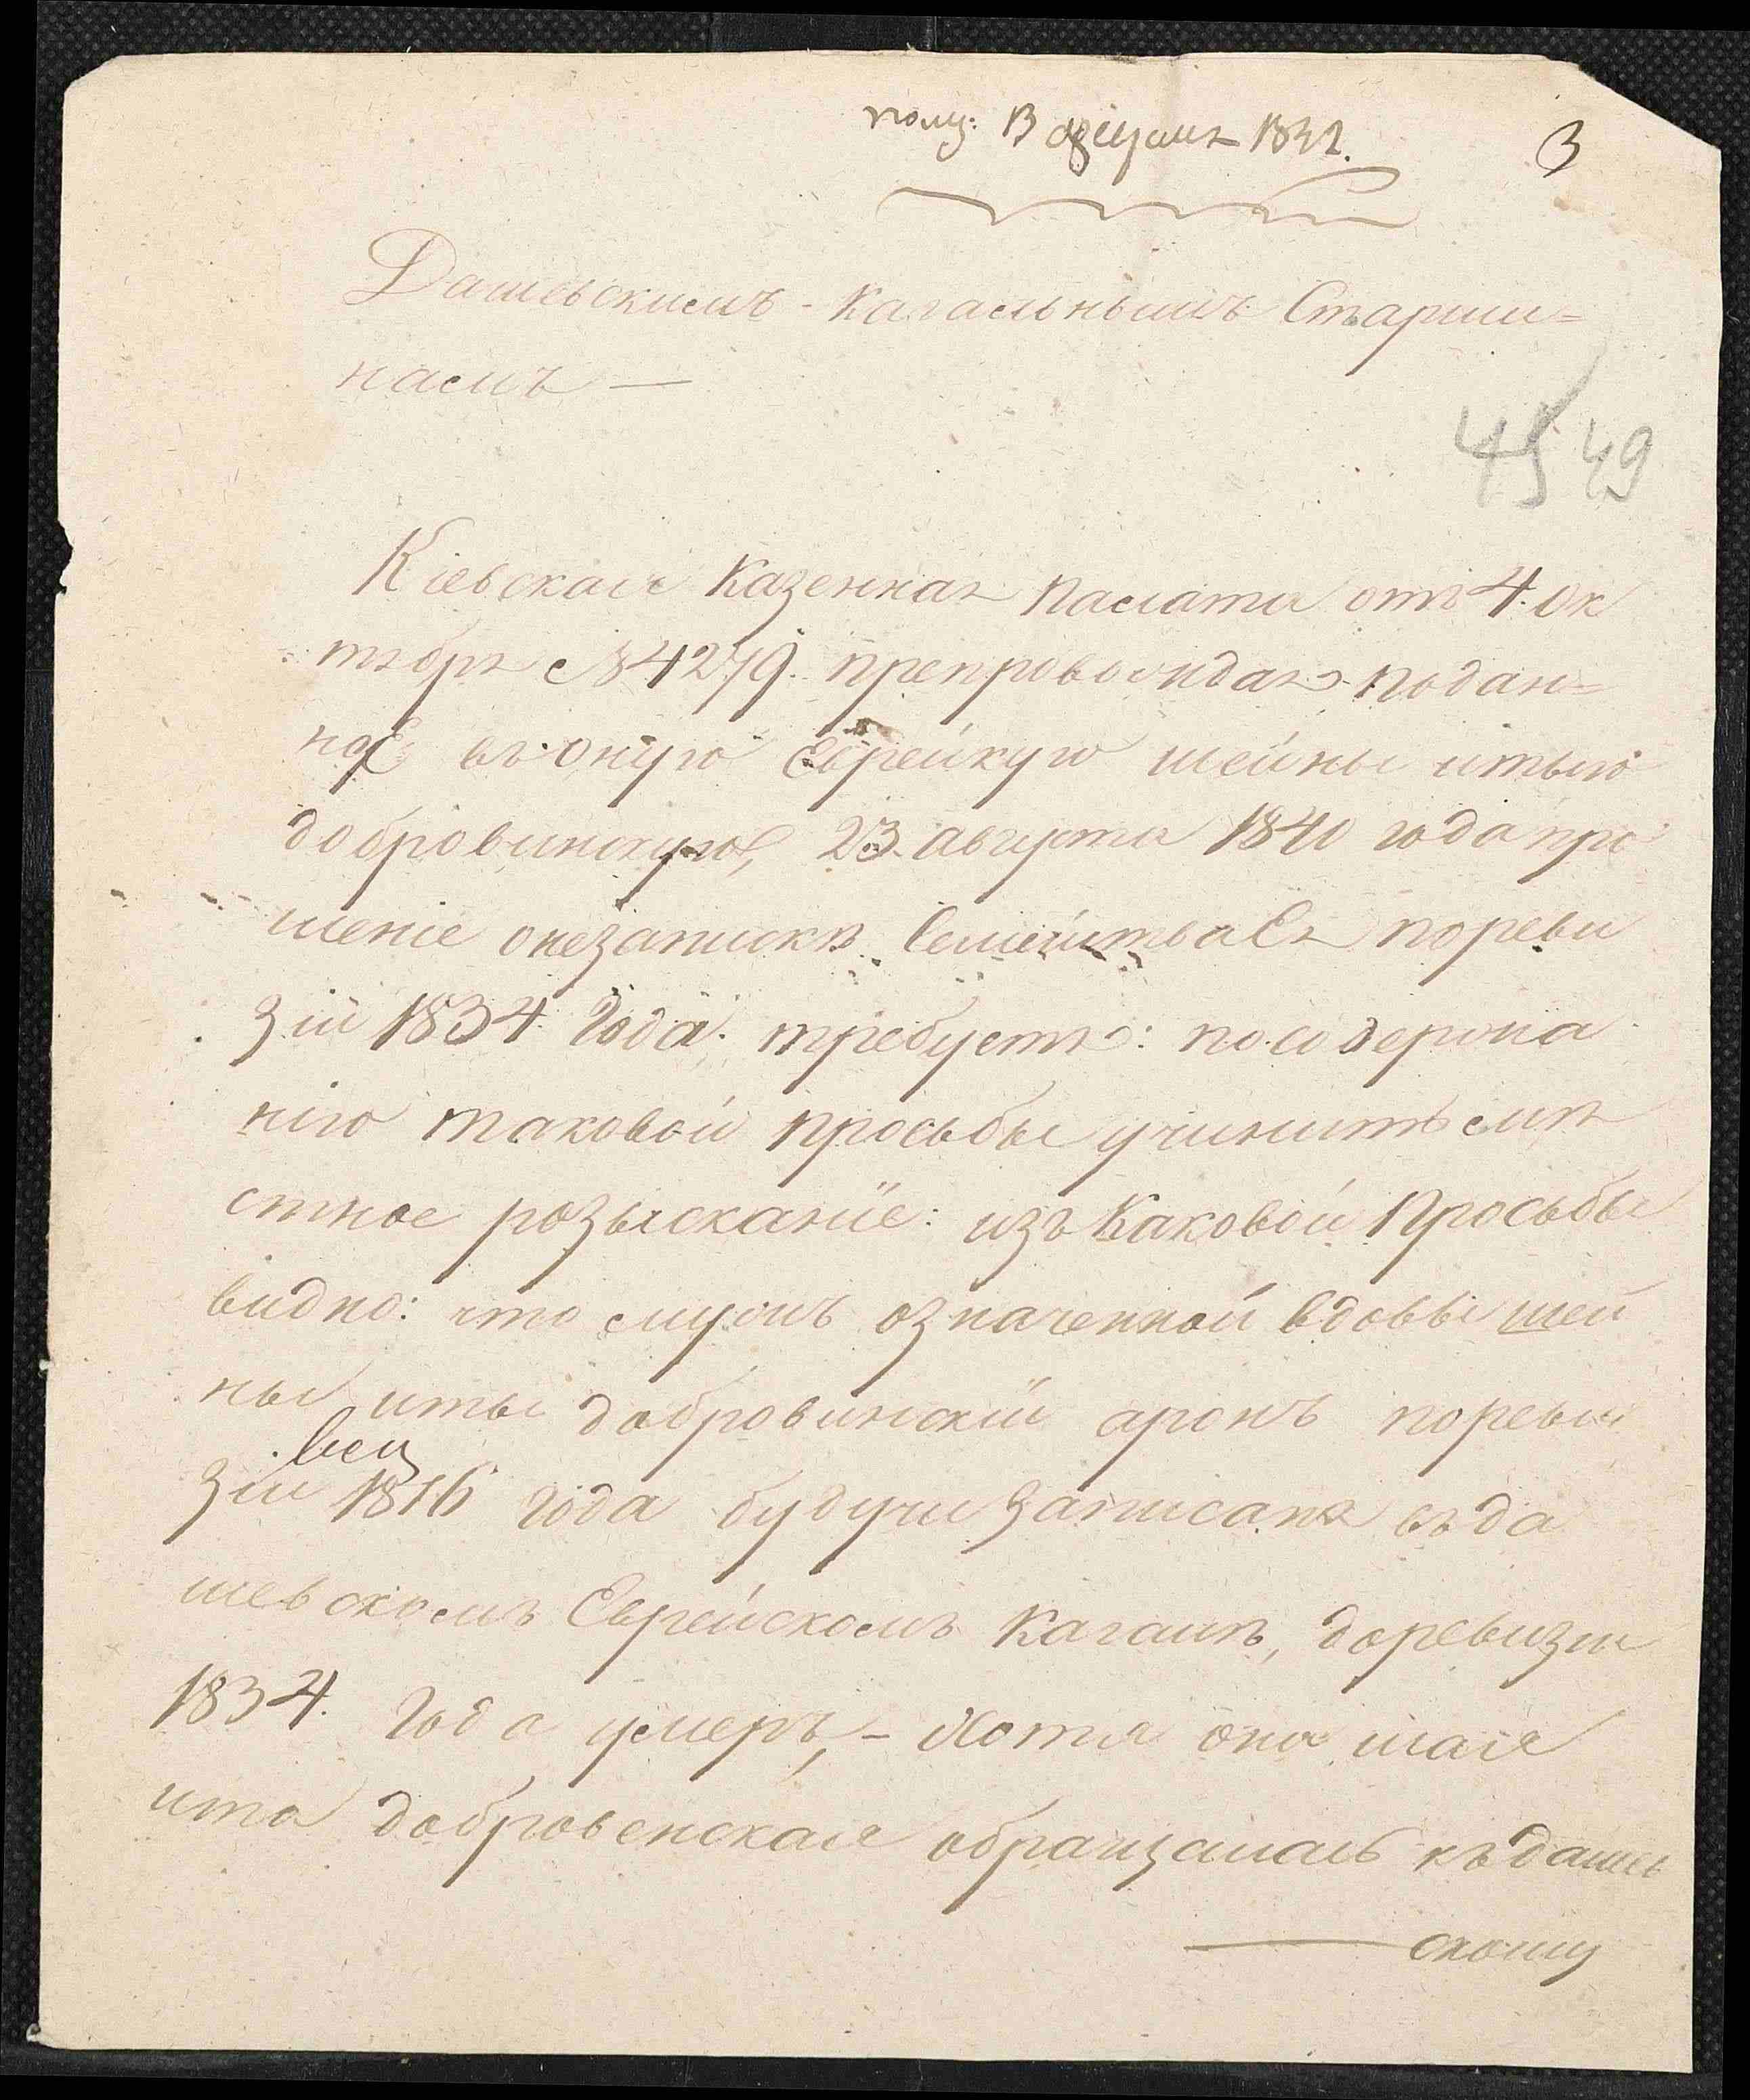 полу: 13 1841.
3
Дашевскимъ - Кагальнымъ Старши=
намъ —
45 49
Кіевская Казенная Палата отъ 4. ок
тября №4279. препровождая подан=
ное въ оную Еврейкую шейны итыю
добровинскую, 23. августа 1840 года про
шеніе онезапискѣ Семейства Ея пореви
зіи 1834. Года. требуетъ: посодержа
нію таковой просьбы учинить мѣ
стное розысканіе: изъ Каковой Просьбы
видно: что мужъ означенной вдовы шей
ны иты добровинскій аронъ пореви
зіи 1816 года будучи записанъ въ да
шевскомъ Еврейскомъ Кагалѣ, доревизіи
1834. Года умеръ, – Хотя она шая
ита добровенская обращалась къ даше
— скому